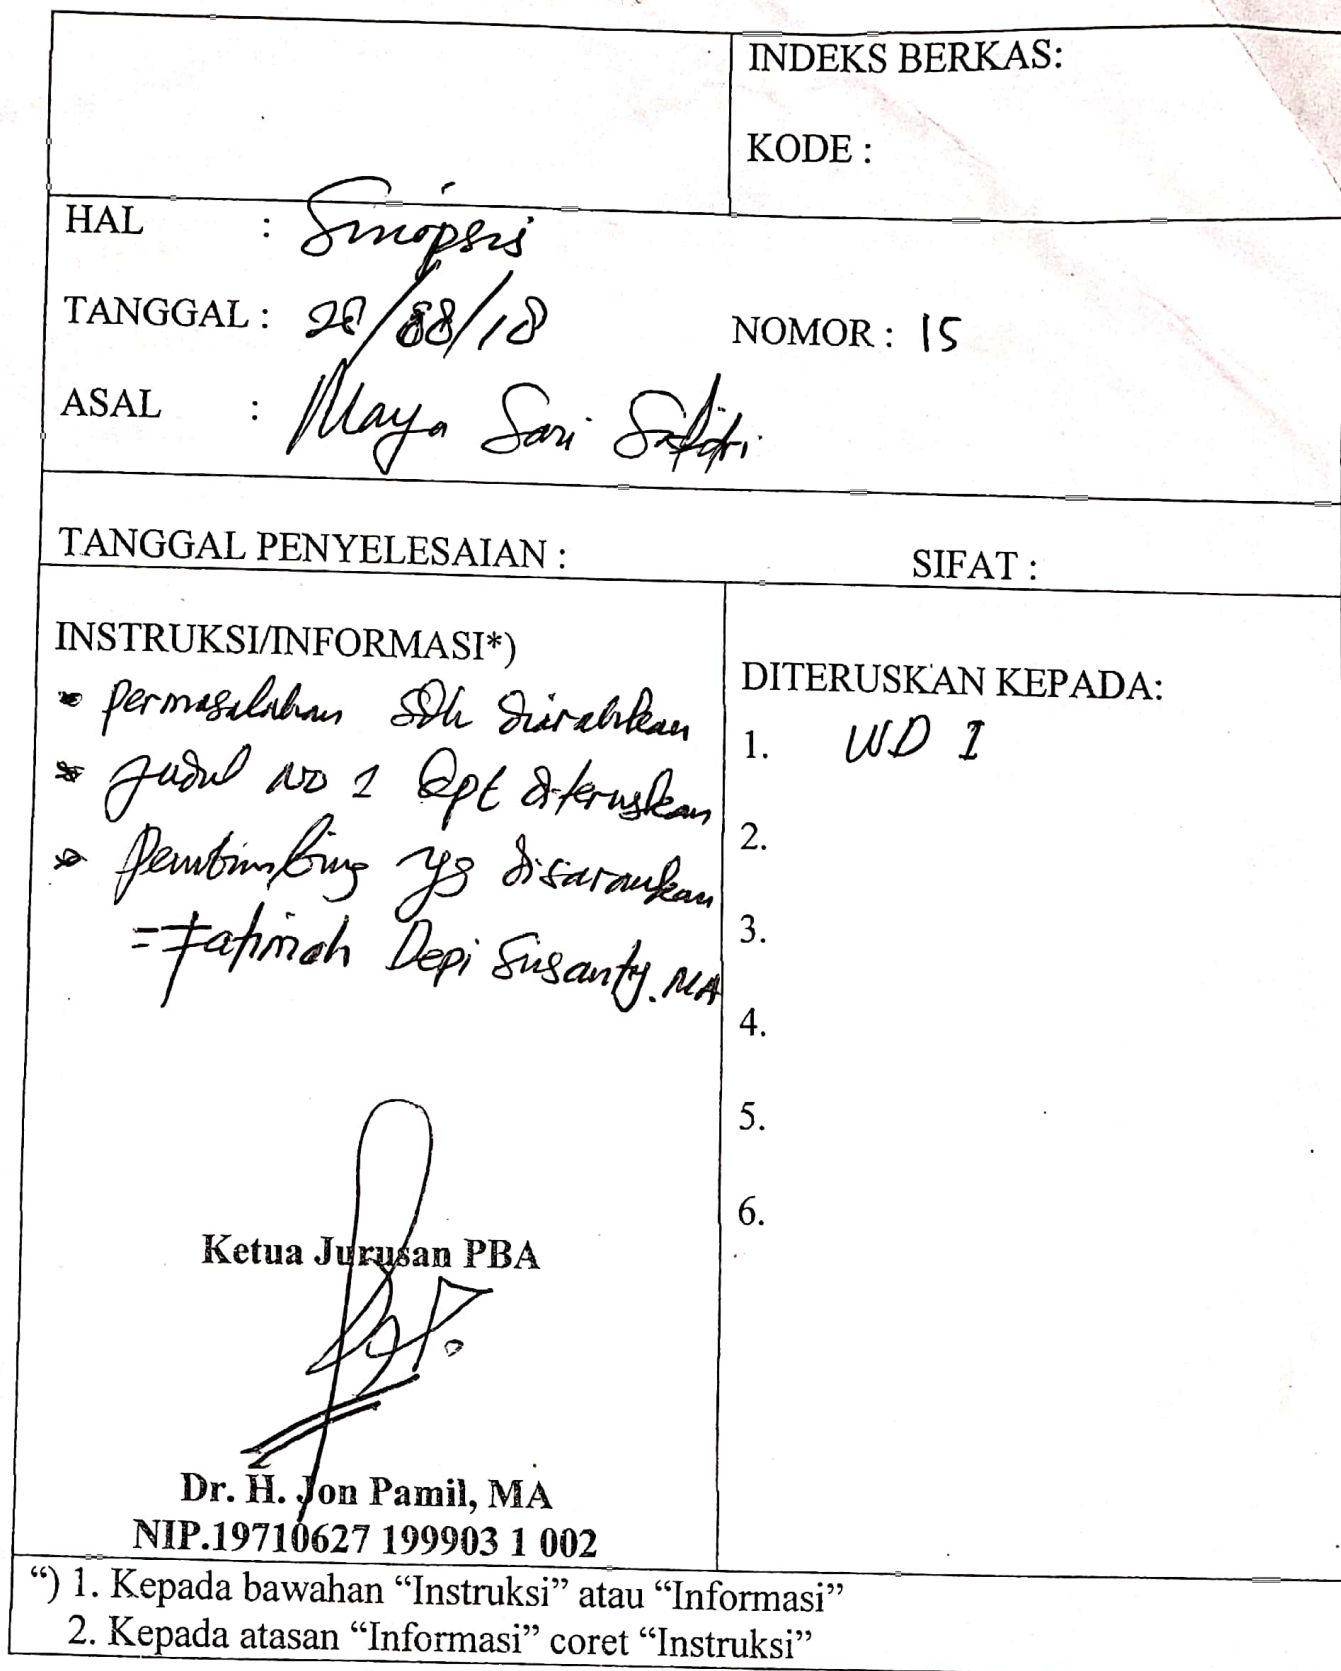 INDEKS BERKAS:
KODE :
HAL : Sinopsis
TANGGAL : /18 NOMOR : 15
ASAL : Maya Sari
TANGGAL PENYELESAIAN : SIFAT :
INSTRUKSI/INFORMASI*)
* permasalahan sdh diarahkan
* Judul no 1 dpt diteruskan
* Pembimbing yg disarankan
= Fatimah Depi Susanty. MA
DITERUSKAN KEPADA:
1. WD I
2.
3.
4.
5.
6.
Ketua Jurusan PBA
Dr. H. Jon Pamil, MA
NIP.19710627 199903 1 002
“) 1. Kepada bawahan “Instruksi” atau “Informasi”
2. Kepada atasan “Informasi” coret “Instruksi”